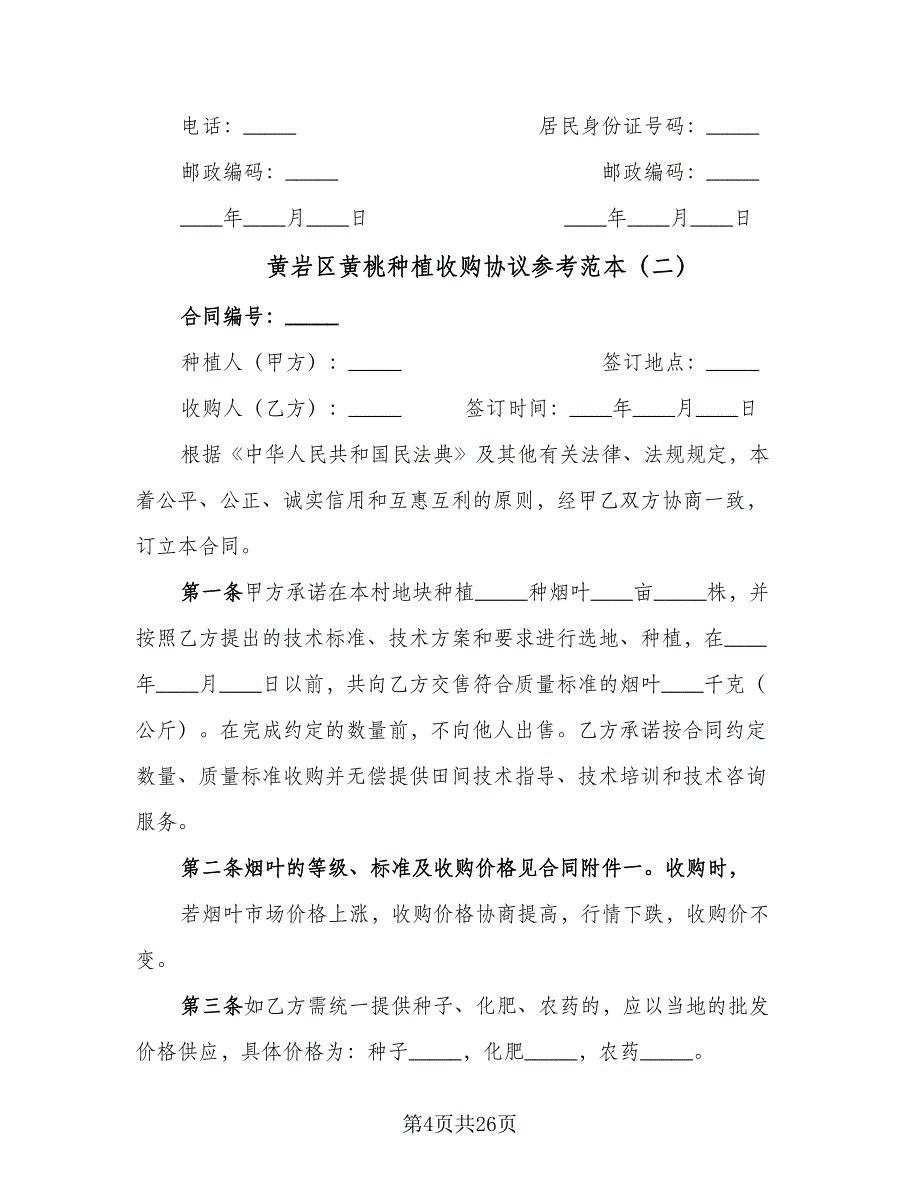 电话：_____ 居民身份证号码：_____
邮政编码：_____ 邮政编码：_____
____年____月____日 ____年____月____日
黄岩区黄桃种植收购协议参考范本（二）
合同编号：_____
种植人（甲方）：_____ 签订地点：_____
收购人（乙方）：_____ 签订时间：____年____月____日
根据《中华人民共和国民法典》及其他有关法律、法规规定，本
着公平、公正、诚实信用和互惠互利的原则，经甲乙双方协商一致，
订立本合同。
第一条甲方承诺在本村地块种植_____种烟叶____亩_____株，并
按照乙方提出的技术标准、技术方案和要求进行选地、种植，在____
年____月____日以前，共向乙方交售符合质量标准的烟叶____千克（
公斤）。在完成约定的数量前，不向他人出售。乙方承诺按合同约定
数量、质量标准收购并无偿提供田间技术指导、技术培训和技术咨询
服务。
第二条烟叶的等级、标准及收购价格见合同附件一。收购时，
若烟叶市场价格上涨，收购价格协商提高，行情下跌，收购价不
变。
第三条如乙方需统一提供种子、化肥、农药的，应以当地的批发
价格供应，具体价格为：种子_____，化肥_____，农药_____。
第4页共26页